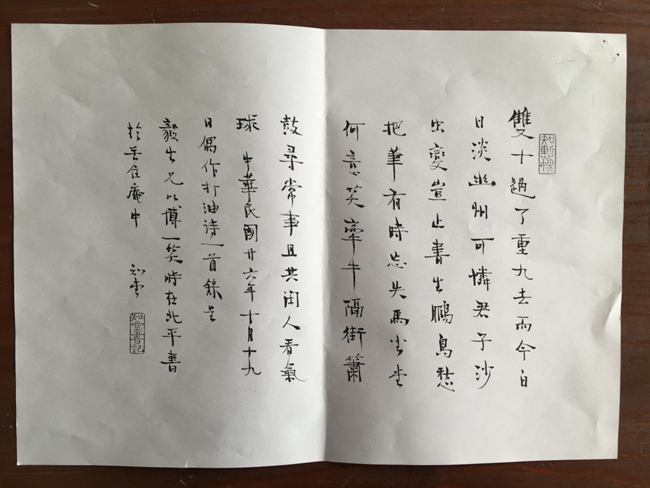 知慚愧
雙十過了重九去而今白
日淡幽州可憐君子沙
虫變豈止書生鵬鳥愁
把筆有時忘失馬坐堂
何意笑牽牛隔街簫
鼓尋常事且共閑人看氣
球 中華民國廿六年十月十九
日偶作打油诗一首錄呈
毅生兄以博一笑時在北平書
於苦住庵中 知堂
知堂書記